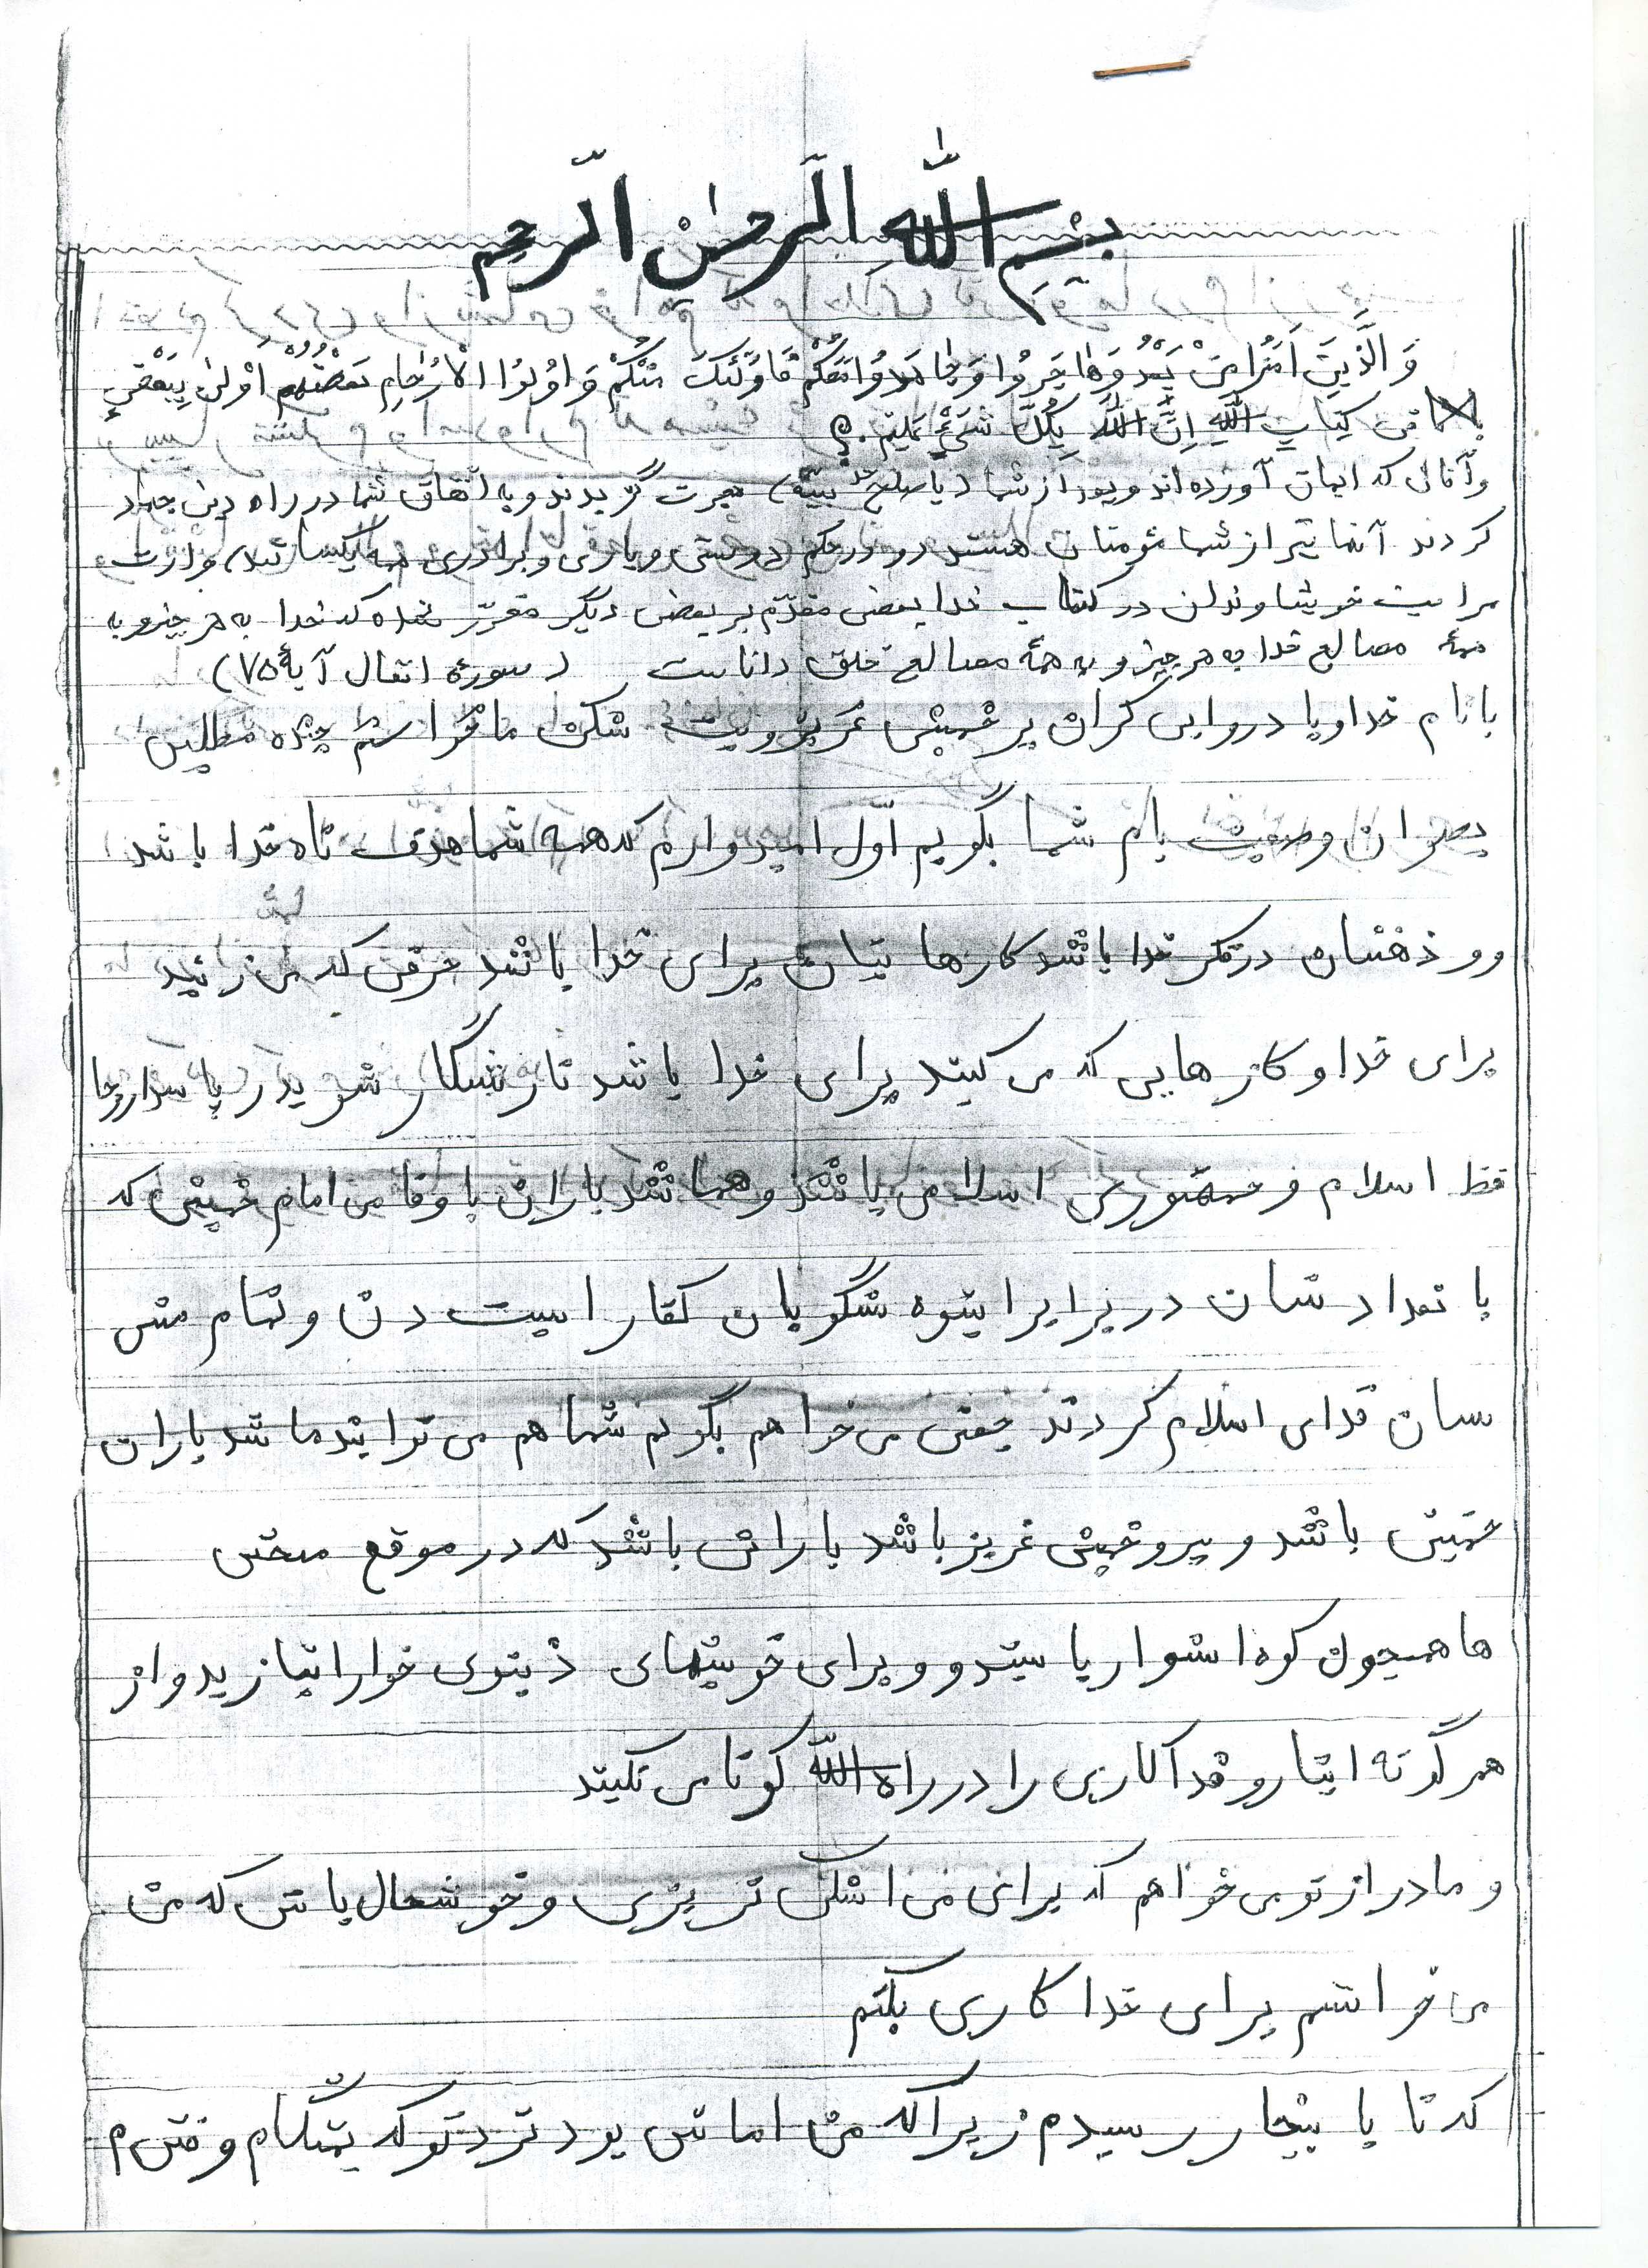 بِسْمِ اللّٰهِ الَّرحمٰنِ الَّرحیم
وَالَّذینَ امَنُوا مِنْ بَعْدُ وَهاجَرُوا وَجاهَدُوا مَعَکُمْ فَاوُلئِکَ مِنْکُمْ وَاوُلوُا الْاَرْحامِ بَعْضُهُمْ اَوْلیٰ بِبَعْضٍ
فی کِتابِ اللّٰهِ اِنَّ اللّٰهَ بِکُلِّ شَیْیٍ عَلیم.
وآنانی که ایمان آورده‌اند و بعد از شما (با صلح حدیبیّه) هجرت گزیدند و به اتفاق شما در راه دین جهاد
کردند آنها نیز از شما مؤمنان هستند و در حکم (دوستی و یاری و برادری همه یکسانند)
خویشاوندان در کتاب خدا بعضی مقدّم بر بعضی دیگر مقرّر که خدا به هر چیز و به
همهٔ مصالح خدا به هر چیز و به همهٔ مصالح خلق داناست (سورهٔ انفال آیهٔ ۷۵)
با نام خدا و با درود بی کران بر خمینی عزیز چند مطلبی
بعنوان وصیت بام شما بگویم اوّل امیدوارم که همه شما هدف تاه خدا باشد
وو ذهنتان در فکر خدا باشد کارها یتان برای خدا باشد حرفی که می زنید
برای خدا و کارهایی که می کنید برای خدا باشد تا رستگار شوید
فقط اسلام و جمهوری اسلامی باشد و همانند یاران با وفا می امام خمینی که
با تعداد شان در برابر انبوه کفار و تمام
سان فدای اسلام کردند می خواهم بگویم شما هم می توانید مانند یاران
خمینی باشد و پیرو خمینی عزیز باشد یارانی باشد که در موقع سختی
ها همچون کوه استوار بایستدو و برای خوشیهای دنیوی خوار از
هر گونه ایثار و فداکاری را در راه اللّٰه کوتا می نکیند
و مادر از تو می خواهم که برای من اشک نریزی و خوشحال باشی که من
می خواستم برای خدا کاری بکنم
که تا با ینجا ر رسیدم زیرا که من امانتی بود نزد تو که